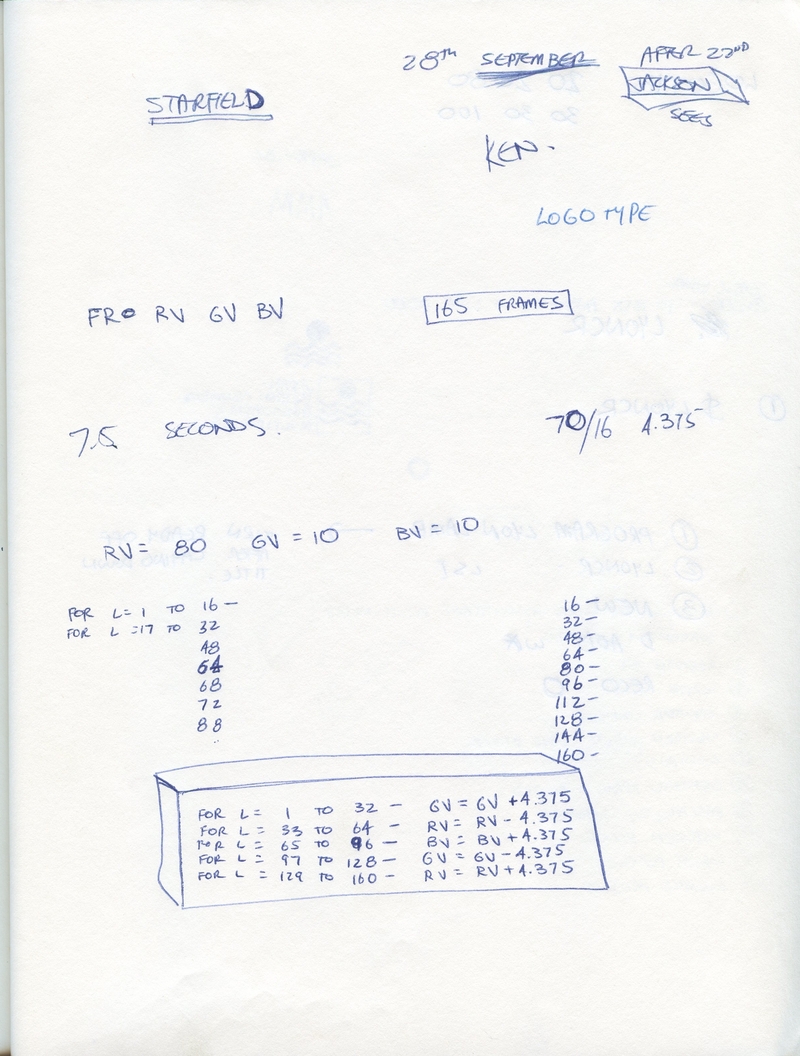 28TH SEPTEMBER
AFTER 22ND
JACKSON
SEES
STARFIELD
KEN.
LOGOTYPE
FR RV GV BV
165 FRAMES
7.5 SECONDS.
70/16 4.375
RV = 80 GV = 10 BV = 10
FOR L = 1 TO 16 —
FOR L = 17 TO 32
48
64
68
72
88
..
16 —
32 —
48 —
64 —
80 —
96 —
112 —
128 —
144 —
160 —
FOR L = 1 TO 32 — GV = GV + 4.375
FOR L = 33 TO 64 — RV = RV - 4.375
FOR L = 65 TO 96 — BV = BV + 4.375
FOR L = 97 TO 128 — GV = GV - 4.375
FOR L = 129 TO 160 — RV = RV + 4.375